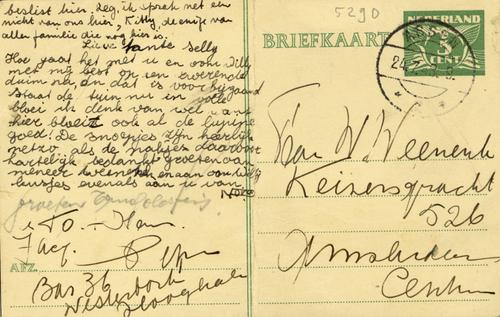 beslist hier, zeg, ik sprak net een
nicht van ons hier, Kitty, de enige van
alle familie die nog hier is.
Lieve tante Selly
Hoe gaat het met u en oom Willy
met mij best op een zwerende
duim na, en dat is voorbijgaand
Staat de tuin nu in volle
bloei ik denk van wel want
hier bloeit ook al de lupine
goed! De snoepjes zijn heerlijk
netzo als de matjes daarvoor
hartelijk bedankt groeten van
meneer en aan oom Willy
kusjes evenals aan u van
Nore
groeten
To - Ham
Jacq.
AFZ.
Bar 36
Westerbork
Hooghalen
5290
BRIEFKAART
NEDERLAND
5
CENT
ASSEN
Frau W. Weenenk
Keizersgracht
526
Amsterdam
Centrum